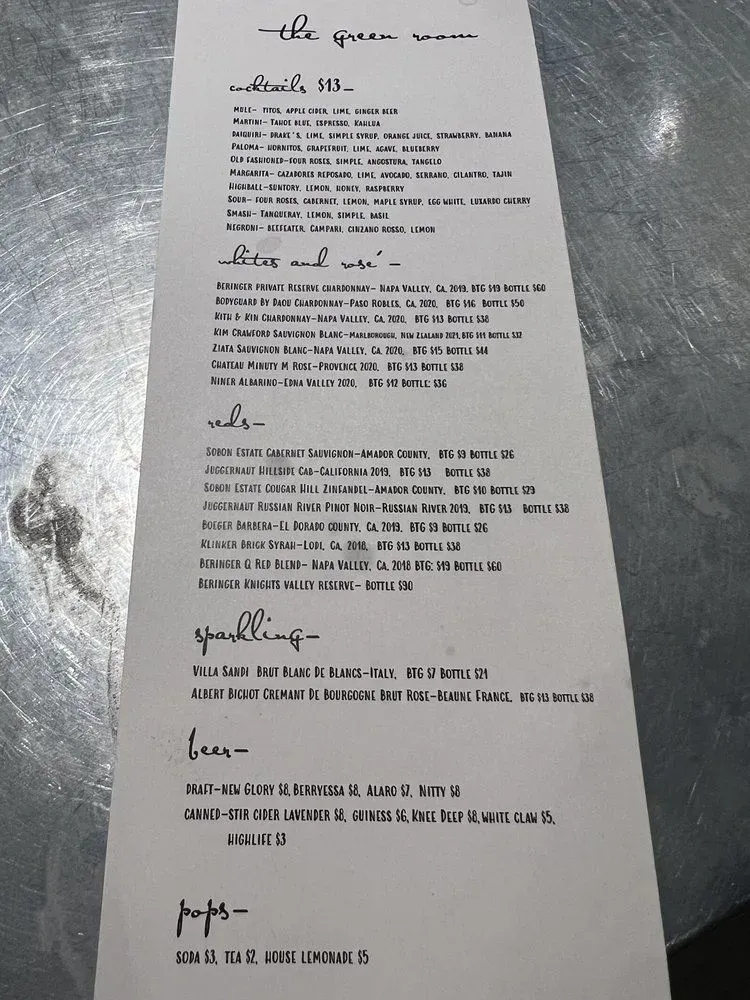 the green room
cocktails $13-
MULE- TITOS, APPLE CIDER, LIME, GINGER BEER
MARTINI- TAHOE BLUE, ESPRESSO, KAHLUA
DAIQUIRI- DRAKE'S, LIME, SIMPLE SYRUP, ORANGE JUICE, STRAWBERRY, BANANA
PALOMA- HORNITOS, GRAPEFRUIT, LIME, AGAVE, BLUEBERRY
OLD FASHIONED-FOUR ROSES, SIMPLE, ANGOSTURA, TANGELO
MARGARITA- CAZADORES REPOSADO, LIME, AVOCADO, SERRANO, CILANTRO, TAJIN
HIGHBALL-SUNTORY, LEMON, HONEY, RASPBERRY
SOUR- FOUR ROSES, CABERNET, LEMON, MAPLE SYRUP, EGG WHITE, LUXARDO CHERRY
SMASH- TANQUERAY, LEMON, SIMPLE, BASIL
NEGRONI- BEEFEATER, CAMPARI, CINZANO ROSSO, LEMON
whites and rosé-
BERINGER PRIVATE RESERVE CHARDONNAY- NAPA VALLEY, CA. 2019. BTG $19 BOTTLE $60
BODYGUARD BY DAOU CHARDONNAY-PASO ROBLES, CA. 2020. BTG $16 BOTTLE $50
KITH & KIN CHARDONNAY-NAPA VALLEY, CA. 2020. BTG $13 BOTTLE $38
KIM CRAWFORD SAUVIGNON BLANC-MARLBOROUGH, NEW ZEALAND 2021. BTG $11 BOTTLE $32
ZIATA SAUVIGNON BLANC-NAPA VALLEY, CA. 2020. BTG $15 BOTTLE $44
CHATEAU MINUTY M ROSE-PROVENCE 2020. BTG $13 BOTTLE $38
NINER ALBARINO-EDNA VALLEY 2020. BTG $12 BOTTLE: $36
reds-
SOBON ESTATE CABERNET SAUVIGNON-AMADOR COUNTY. BTG $9 BOTTLE $26
JUGGERNAUT HILLSIDE CAB-CALIFORNIA 2019. BTG $13 BOTTLE $38
SOBON ESTATE COUGAR HILL ZINFANDEL-AMADOR COUNTY. BTG $10 BOTTLE $29
JUGGERNAUT RUSSIAN RIVER PINOT NOIR-RUSSIAN RIVER 2019. BTG $13 BOTTLE $38
BOEGER BARBERA-EL DORADO COUNTY, CA. 2019. BTG $9 BOTTLE $26
KLINKER BRICK SYRAH-LODI, CA. 2018. BTG $13 BOTTLE $38
BERINGER Q RED BLEND- NAPA VALLEY, CA. 2018 BTG: $19 BOTTLE $60
BERINGER KNIGHTS VALLEY RESERVE- BOTTLE $90
sparkling-
VILLA SANDI BRUT BLANC DE BLANCS-ITALY. BTG $7 BOTTLE $21
ALBERT BICHOT CREMANT DE BOURGOGNE BRUT ROSE-BEAUNE FRANCE. BTG $13 BOTTLE $38
beer-
DRAFT-NEW GLORY $8, BERRYESSA $8, ALARO $7, NITTY $8
CANNED-STIR CIDER LAVENDER $8, GUINESS $6, KNEE DEEP $8, WHITE CLAW $5,
HIGHLIFE $3
pops-
SODA $3, TEA $2, HOUSE LEMONADE $5